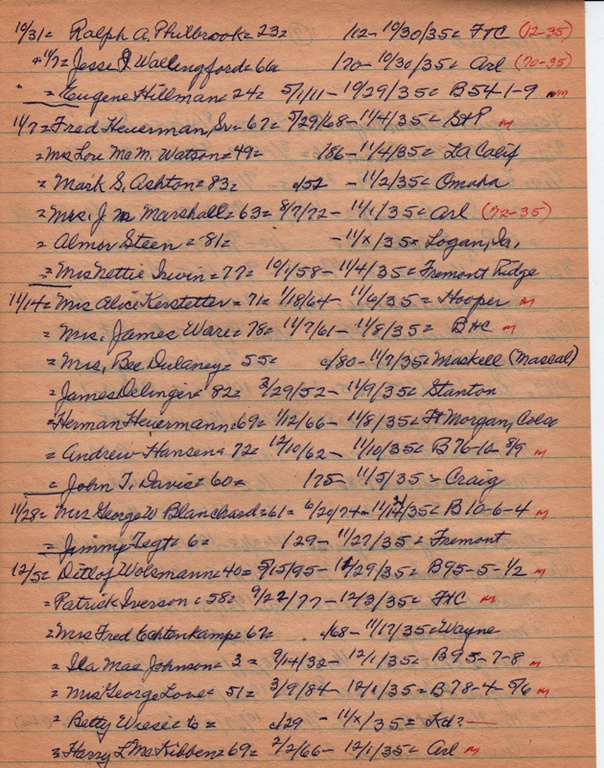 10/31= Ralph A. Philbrook= 23= 1/12- 10/30/35= FtC (12-35)
11/7= Jesse J Wallingford= 66 1/70- 10/30/35= Arl (70-35)
" = Eugene Hillman= 24= 5/1/11- 10/29/35= B54-1-9 NM
11/7= Fred Heuerman, Sr= 67= 5/29/68- 11/4/35= M
=Mrs Lou Mc M. Watson= 49= 186- 11/4/35= La Calif
= Mark S. Ashton= 83= c/52 - 11/2/35= Omaha
= Mrs. J M Marshall= 63= 8/7/72- 11/1/35= Arl (72-35)
= Almor Steen= 81= - 11/x/35= Logan, Ia.
= Mrs Nettie Irwin= 77= 10/1/58- 11/4/35= Fremont Ridge
11/14= Mrs Alice Kerstetter= 71= 1/18/64- 11/6/35= Hooper M
= Mrs. James Ware= 78= 11/7/61- 11/8/35= M
= Mrs. Bee Dulaney= 55= c/80- 11/7/35= Maskell (Mascal)
= James Delinger= 82= 3/29/52- 11/9/35= Stanton
=Herman Heuermann=69= 1/12/66- 11/8/35= Ft Morgan, Colo
= Andrew Hansen= 72= 12/10/62- 11/10/35= B76-12- 8/9 M
= John T. Davis= 60= 175- 11/5/35= Craig
11/28= Mrs George W Blanchard=61= 6/20/74- /35= B10-6-4 M
= Jimmy Tegt= 6= 129- 11/27/35= Fremont
12/5= Ditlof Wolsmann= 40= 5/15/95- /29/35= B95-5-1/2 M
=Patrick Iverson= 58= 9/22/77- 12/3/35= FtC M
=Mrs Fred Echtenkamp= 67= c/68- 11/17/35= Wayne
= Ila Mae Johnson= 3= 9/14/32- 12/1/35= B95-7-8 M
= Mrs George Love= 51= 3/9/84- 12/1/35= B78-4-5/6 M
= Betty Wiese= 6= c/29 - 11/x/35=
= Harry L McKibben= 69= 2/2/66- 12/1/35= Arl M